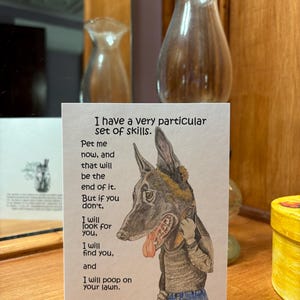 I have a very particular
set of skills.
Pet me
now, and
that will
be the
end of it.
But if you
don't,
I will
look for
you,
I will
find you,
and
I will poop on
your lawn.